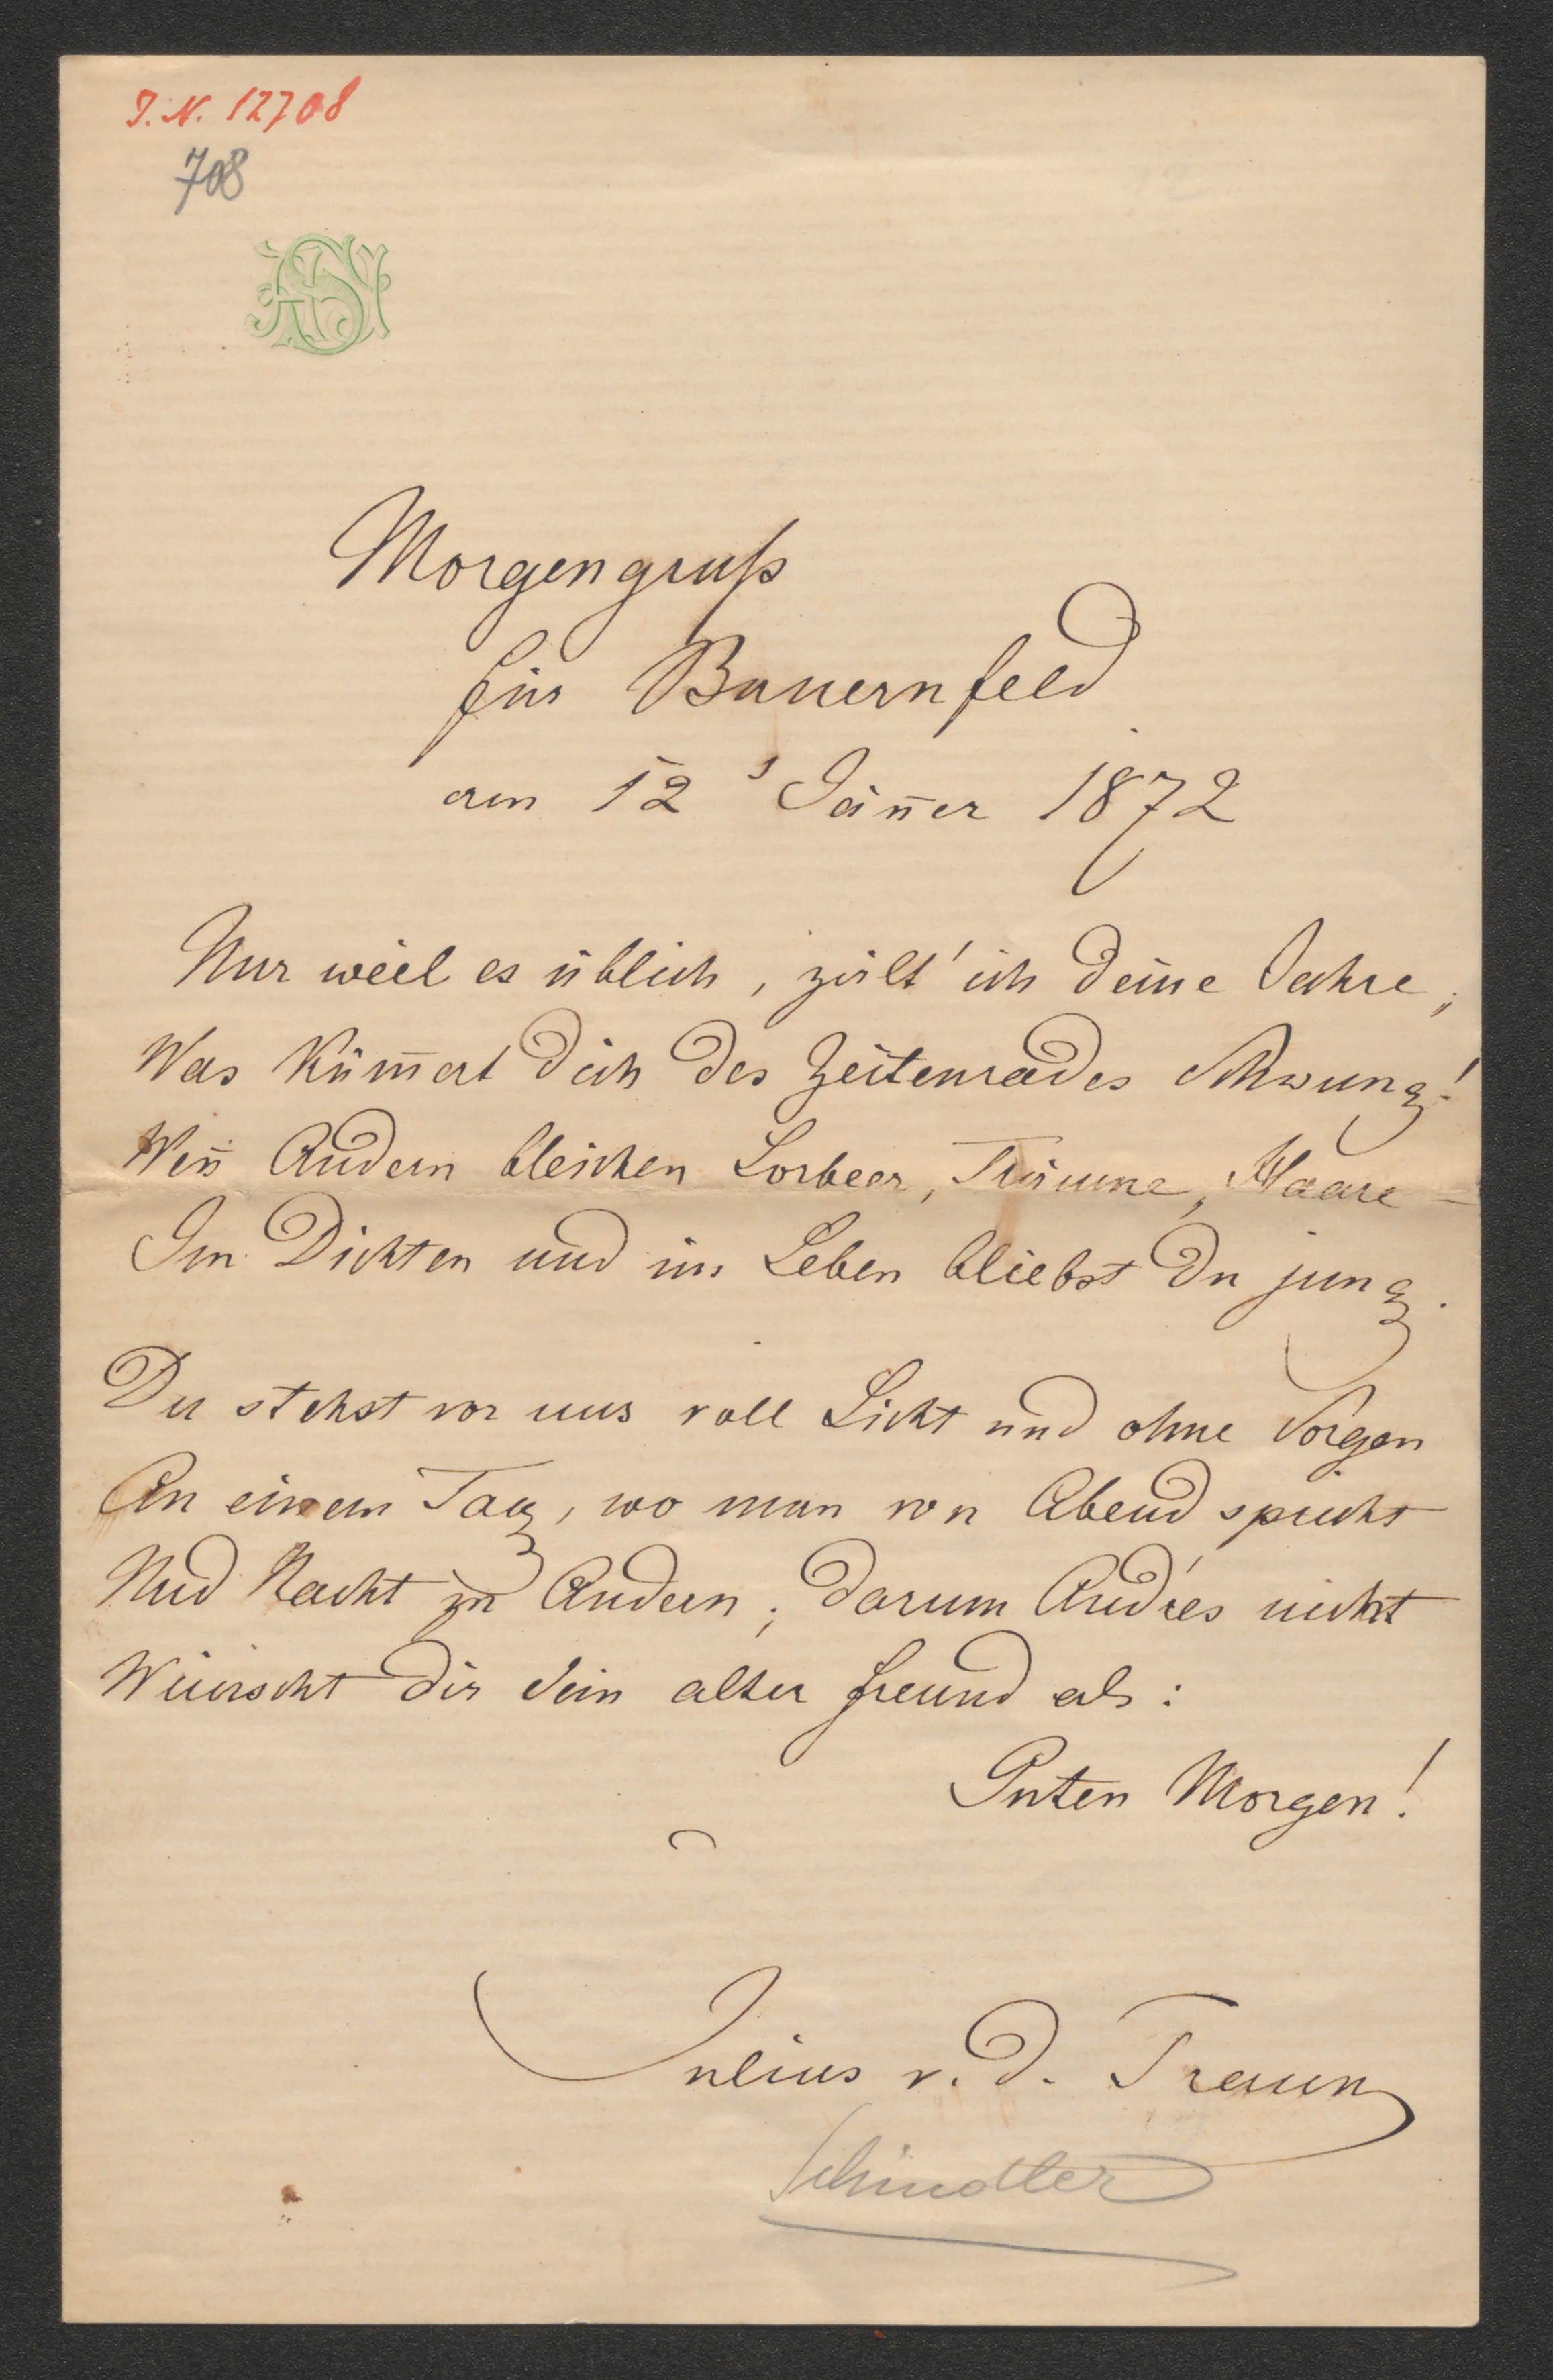 I. N. 12708
708
Morgengruß
für Bauernfeld
am 12 Jän̄er 1872
Nur weil es üblich, zält' ich deine Jahre;
Was küm̄ert dich des Zeitenrades Schwung!
Wen̄ Andern bleichen Lorbeer, Träume, Haare –
Im Dichten und im Leben bliebst du jung.
Du stehst vor uns voll Licht und ohne Sorgen
An einem Tag, wo man von Abend spricht
Und Nacht zu Andern; darum And'res nicht
Wünscht dir dein alter Freund als:
Guten Morgen!
Julius v. d. Traun
Schindler